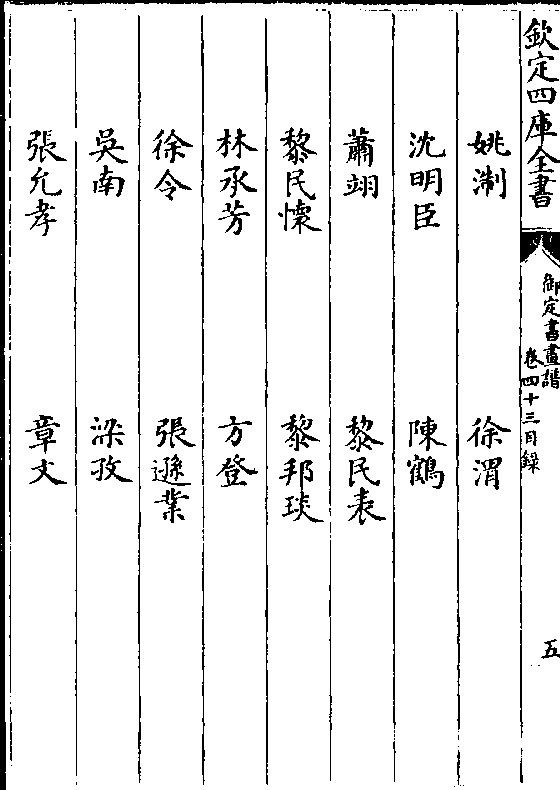 欽定四庫全書
御定書畫譜
卷四十三目錄
五
姚淛
徐渭
沈明臣
陳鶴
蕭翊
黎民表
黎民懷
黎邦琰
林承芳
方登
徐令
張遜業
吳南
梁孜
張允孝
章文